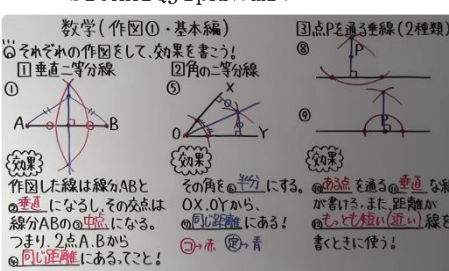 数学(作図①・基本編)
それぞれの作図をして、効果を書こう!
1 垂直二等分線
①
A B
効果
作図した線は線分ABと
② 垂直 になるし、その交点は
線分ABの③ 中点 になる。
つまり、2点A、Bから
④ 同じ距離 にあるってこと!
2 角の二等分線
⑤
X
O Y
効果
その角を⑥ 半分 にする。
OX、OYから、
⑦ 同じ距離 にある!
コ→赤 定→青
3 点Pを通る垂線(2種類)
⑧
P
⑨
P
効果
⑩ ある点 を通る⑪ 垂直 な線
が書ける。また、距離が
⑫ もっとも短い(近い) 線を
書くときに使う!